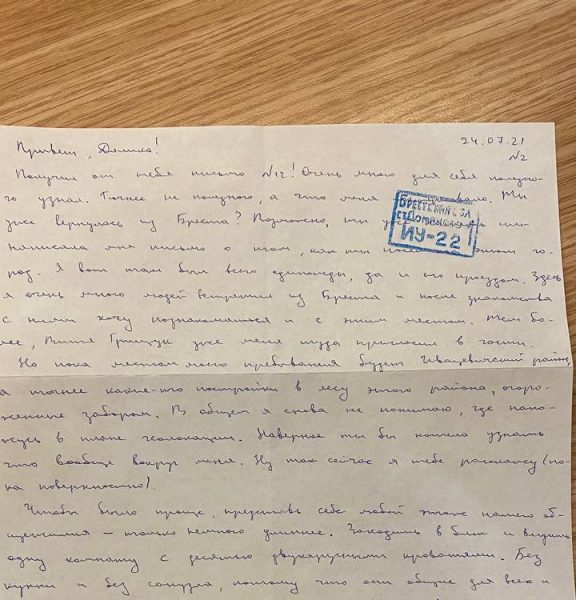 Привет, Димка! 24.07.21
№2
Получил от тебя письмо №12! Очень много для себя полезно-
го узнал. Точнее не полезного, а что меня Ты
уже вернулась из Бреста? Возможно, ты уже или
написала мне письмо о том, как ты этом го-
род. Я вот там был всего единожды, да и то проездом. Здесь
я очень много людей встретил из Бреста и после знакомства
с ними хочу познакомиться и с этим местом. Тем бо-
лее, Витя Грищук уже меня туда пригласил в гости.
Но пока местом моего пребывания будет Ивацевичский район,
а точнее какие-то постройки в лесу этого района, огоро-
женные забором. В общем я снова не понимаю, где нахо-
жусь в плане геолокации. Наверное ты бы хотела узнать
что вообще вокруг меня. Ну так сейчас я тебе расскажу (по-
ка поверхностно).
Чтобы было проще, представь себе любой этаж нашего об-
щежития – только немного длиннее. Заходишь в блок и видишь
одну комнату с десятью двухярусными кроватями. Без
кухни и без санузла, потому что они общие для всех и
ст.Доманово
ИУ-22